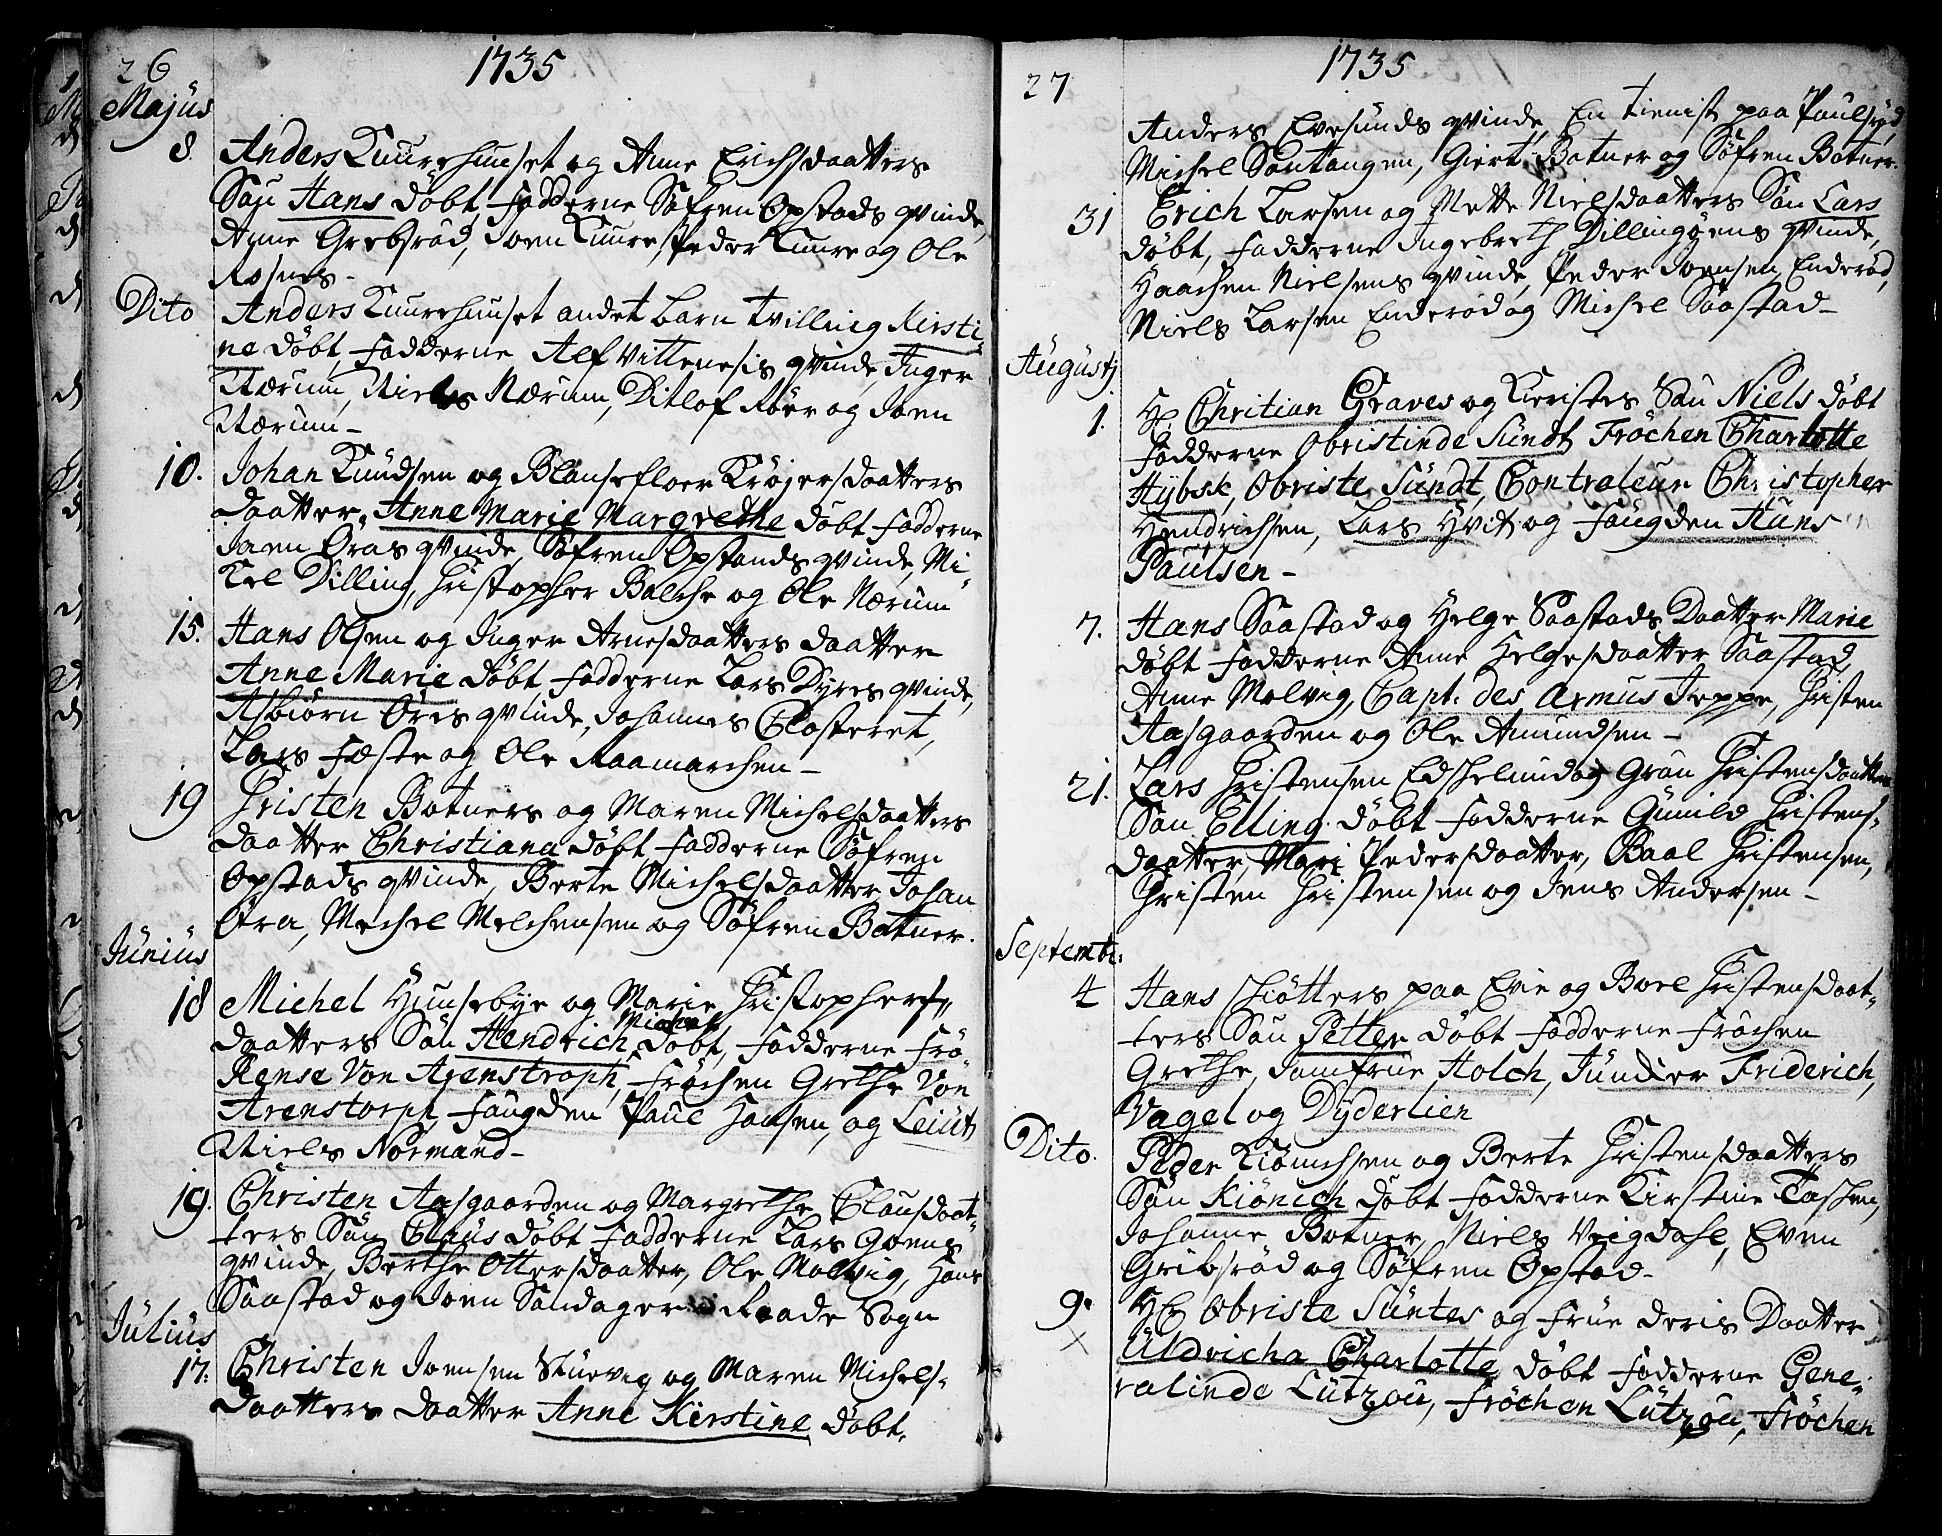 26
1735
Majus
8. Anders Kuurehuuset og Anne Erichsdaatters
Søn Hans døbt, Fadderne Søfren Opstads qvinde,
Anne Grebsrød, Joen Kuure, Peder Kuure og Ole
Rosnes-
Dito Anders Kuurehuuset andet barn tvilling Kirsti-
ne døbt, Fadderne Alf Vittenesis qvinde, Inger
Nærum, Niels Nærum, Ditlof Røer og Joen
Nærum-
10. Johan Knudsen og Blansefloer Krøjersdaatters
Daatter Anne Marie Margrethe døbt Fadderne
Joen Øras qvinde, Søfren Opstands qvinde, Mi-
kel Dilling, Christopher Balche og Ole Nærum
15. Hans Olsen og Inger Arnesdaatters Daatter
Anne Marie døbt, Fadderne Lars Dyres qvinde,
Asbiørn Øres qvinde, Johannes Closteret,
Lars Fæste og Ole Raamarchen-
19 Christen Botners og Maren Michelsdaatters
Daatter Christiana døbt Fadderne Søfren
Opstads qvinde, Berte Michelsdaatter, Johan
Øra, Mechel Melchensen og Søfren Botner.
Junius
18 Michel Huusebye og Marie Christophers-
daatters Søn Hendrich Michel døbt, Fadderne Frø-
Kense Von Arenstroph, Frøchen Grethe Von
Arenstorph, Faugden Paul Hansen, og Leiut
Niels Normand-
19. Christen Aasgaarden og Margrethe Clausdaat-
ters Søn Claus døbt Fadderne Lars Goens
qvinde, Berthe Ottersdaatter, Ole Molvig, Hans
Saastad og Joen Sandager i Raade Sogn
Julius
17. Christen Joensen Stuevig og Maren Michels-
Daatters Daatter Anne Kirstine døbt,
27
1735
Anders Evesunds qvinde, En tienist paa Paulsrød
Michel Sontangen, Giert Botner og Søfren Botner.
31 Erich Larsen og Mette Nielsdaatters Søn Lars
døbt, Fadderne Ingebreth Dillingøens qvinde,
Haachen Nielsens qvinde, Peder Joensen Enderød,
Niels Larsen Enderød og Michel Saastad-
Augustj
1. Hr Chritian Graves og Kieristes Søn Niels døbt
Fadderne Obristinde Sundt Frøchen Charlotte
Hybsk, Obriste Sundt, Contraleur Christopher
Hendrichsen, Lars Hvit og Faugden Hans
Paulsen-
7. Hans Saastad og Helge Saastads Daatter Marie
døbt Fadderne Anne Helgesdaatter Saastad,
Anne Molvig, Capt: des Armus Jeppe, Christen
Aasgaarden og Ole Amundsen-
21. Lars Christensen Edshelund og Gron Christensdaatters
Søn Elling døbt Fadderne Gunild Christens-
daatter, Mari Pedersdaatter, Baal Christensen,
Christen Christensen og Jens Andersen-
Septembr:
4 Hans Schøtters paa Evie og Borel Christensdaat-
ters Søn Petter døbt Fadderne Frøchen
Grethe, Jomfrue Holch, Juncker Friderich,
Vagel og Dyderlien
Dito. Peder Kiønichsen og Berte Christensdaatters
Søn Kiønich døbt Fadderne Kirstine Taschen,
Johanne Botner, Niels Vrigdahl, Even
Gribsrød og Søfren Opstad-
9. Hr Obriste Suntes og Frue deris Daatter
Uldricha Charlotte døbt Fadderne Gene-
ralinde Lützou, Frøchen Lützou, Frøchen